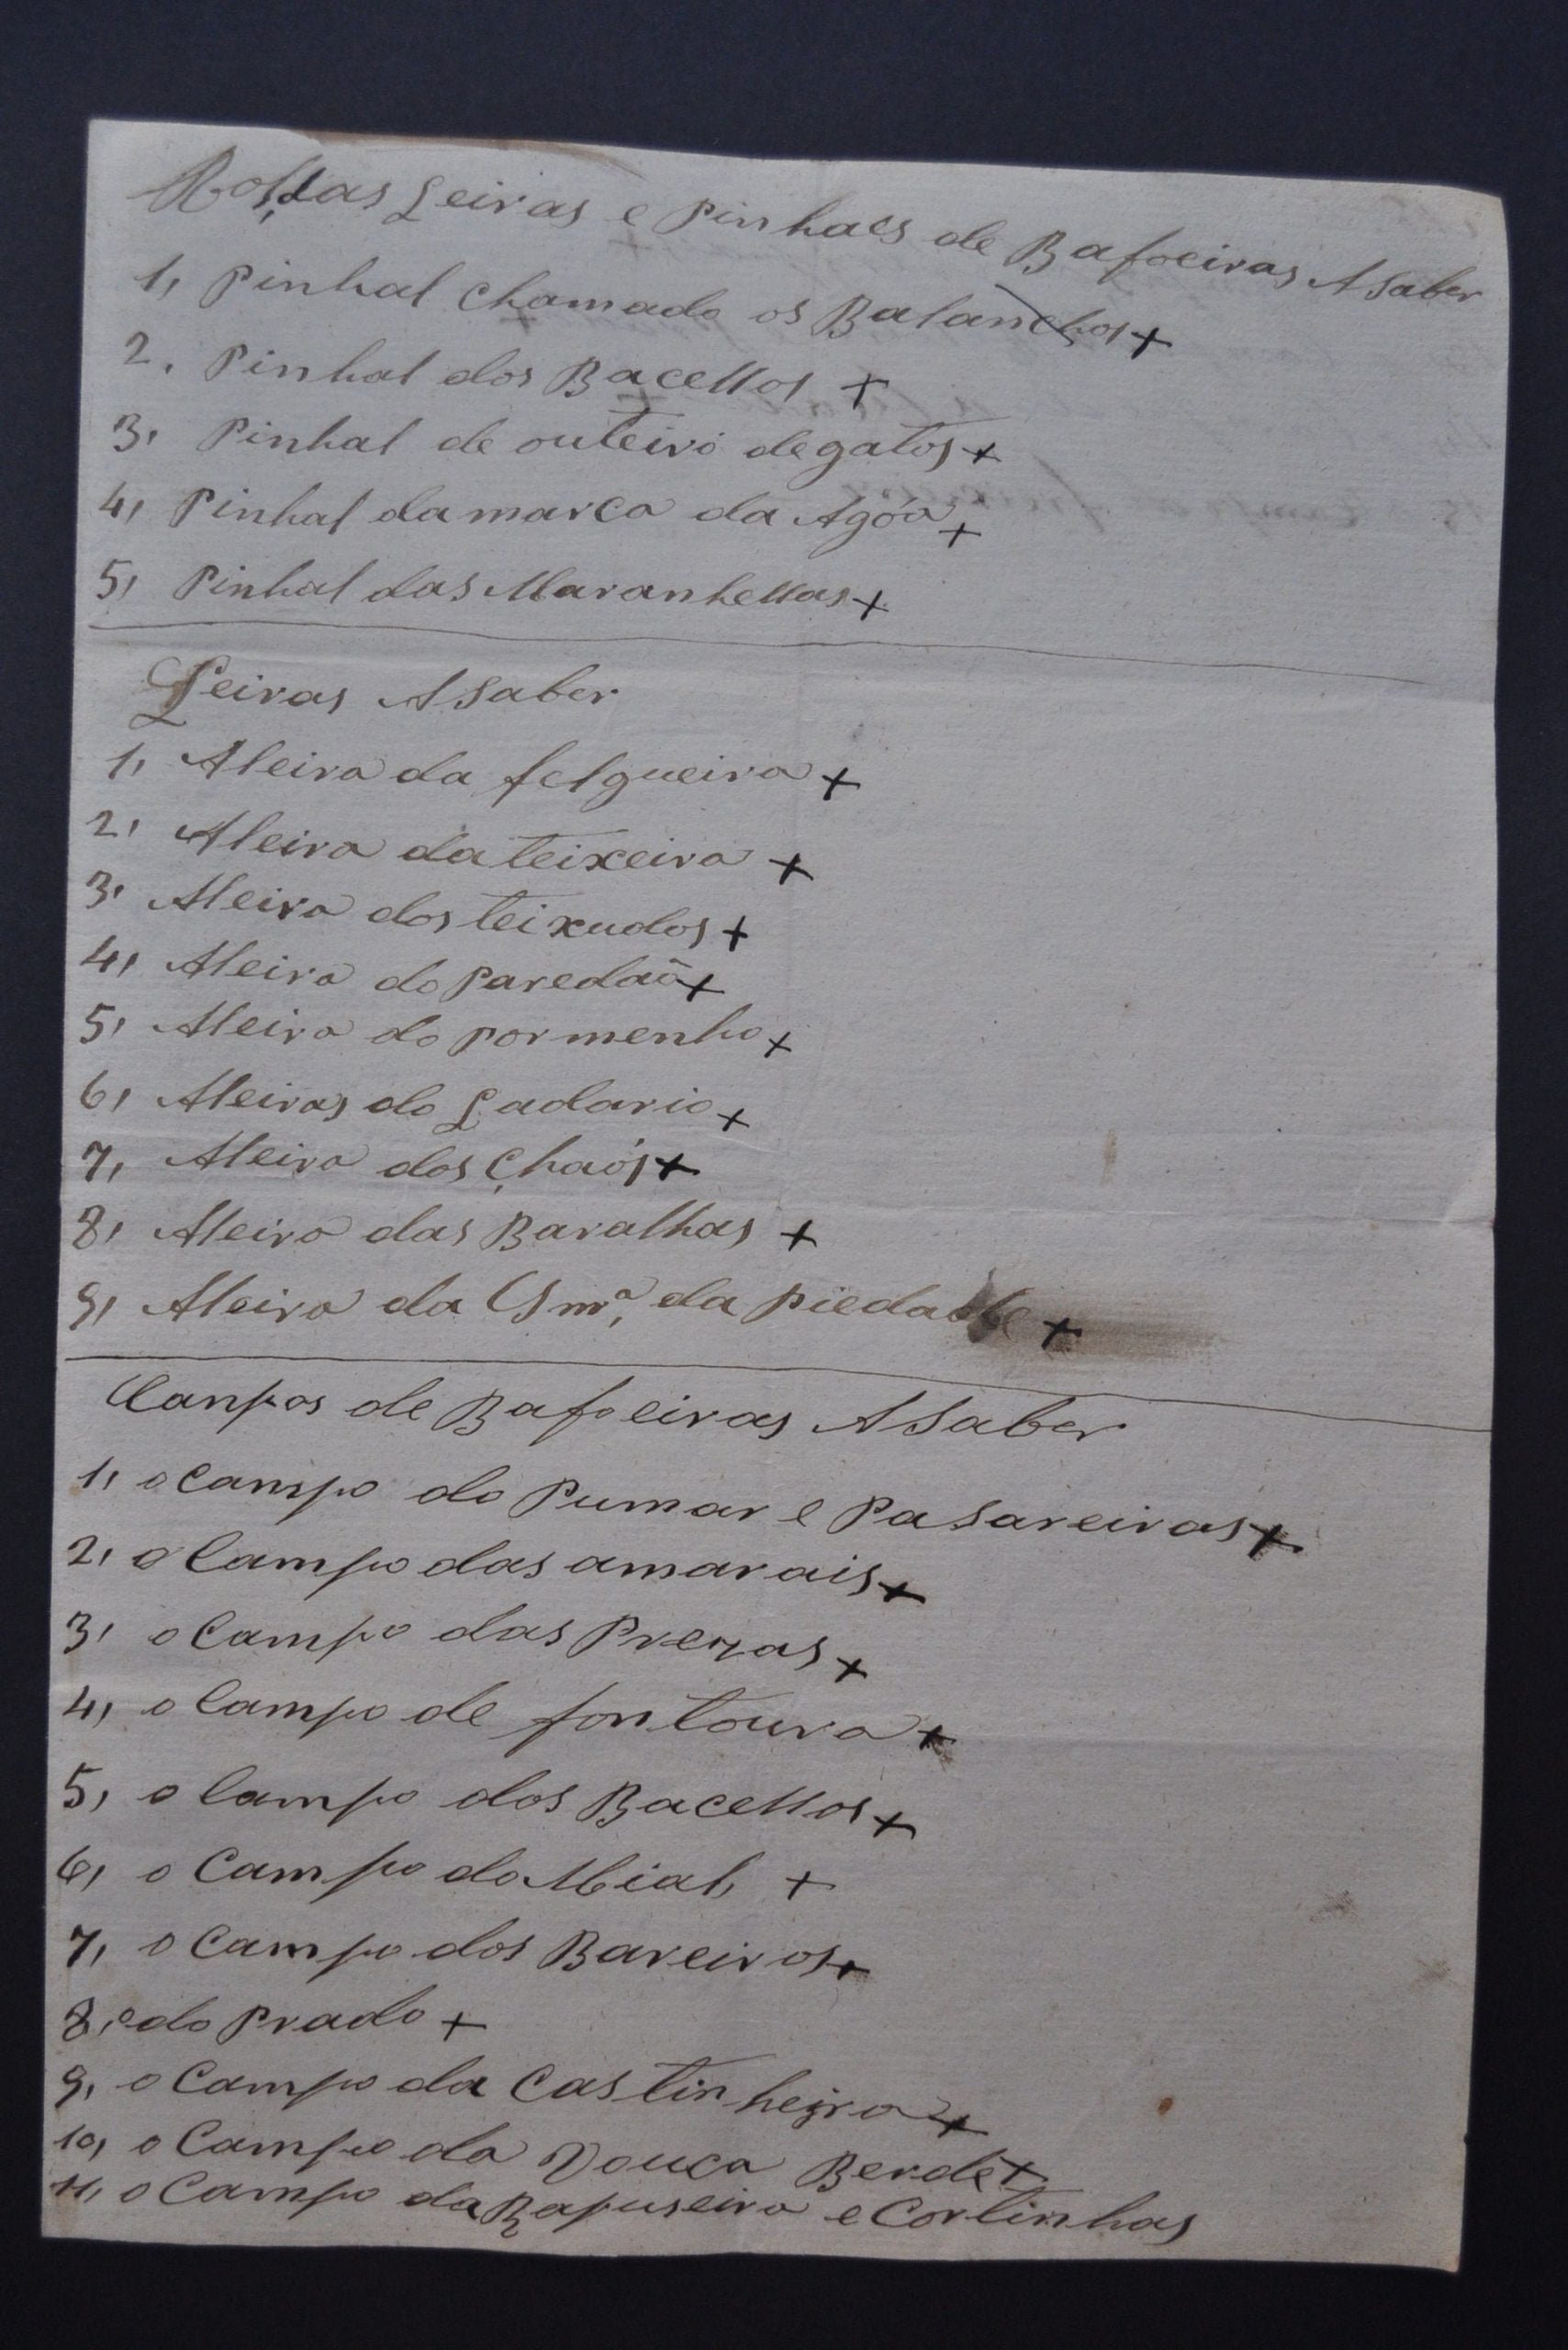 Leiras e Pinhaes de Bafoeiras A Saber
1, Pinhal chamado os Balanchos +
2, Pinhal dos Bacellos +
3, Pinhal de outeiro degatos +
4, Pinhal damarca da Agóa +
5, Pinhal das Maranhellas +
Leiras A Saber
1, Aleira da felgueira +
2, Aleira da teixeira +
3, Aleira dos teixudos +
4, Aleira do Paredaõ +
5, Aleira do Pormenho +
6, Aleiras do Ladario +
7, Aleira dos Chaós +
8, Aleira das Baralhas +
9, Aleira da da Piedade +
Canpos de Bafoeiras A Saber
1, o Campo do Pumar e Pasareiras +
2, o Campo das amarais +
3, o Campo das Prezas +
4, o Campo de fontoura +
5, o Campo dos Bacellos +
6, o Campo do Mial, +
7, o Campo dos Bareiros +
8, e do Prado +
9, o Campo da Castinheira +
10, o Campo da Douca Berde +
11, o Campo da Rapuseira e Cortinhas